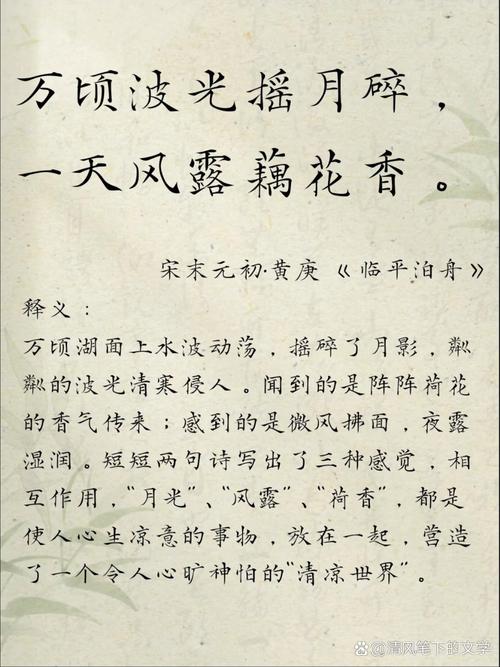 万顷波光摇月碎，
一天风露藕花香。
宋末元初·黄庚《临平泊舟》
释义：
万顷湖面上水波动荡，摇碎了月影，粼
粼的波光清寒侵人。闻到的是阵阵荷花
的香气传来；感到的是微风拂面，夜露
湿润。短短两句诗写出了三种感觉，相
互作用，“月光”、“风露”、“荷香”，都是
使人心生凉意的事物，放在一起，营造
了一个令人心旷神怕的“清凉世界”。
清风笔下的文学